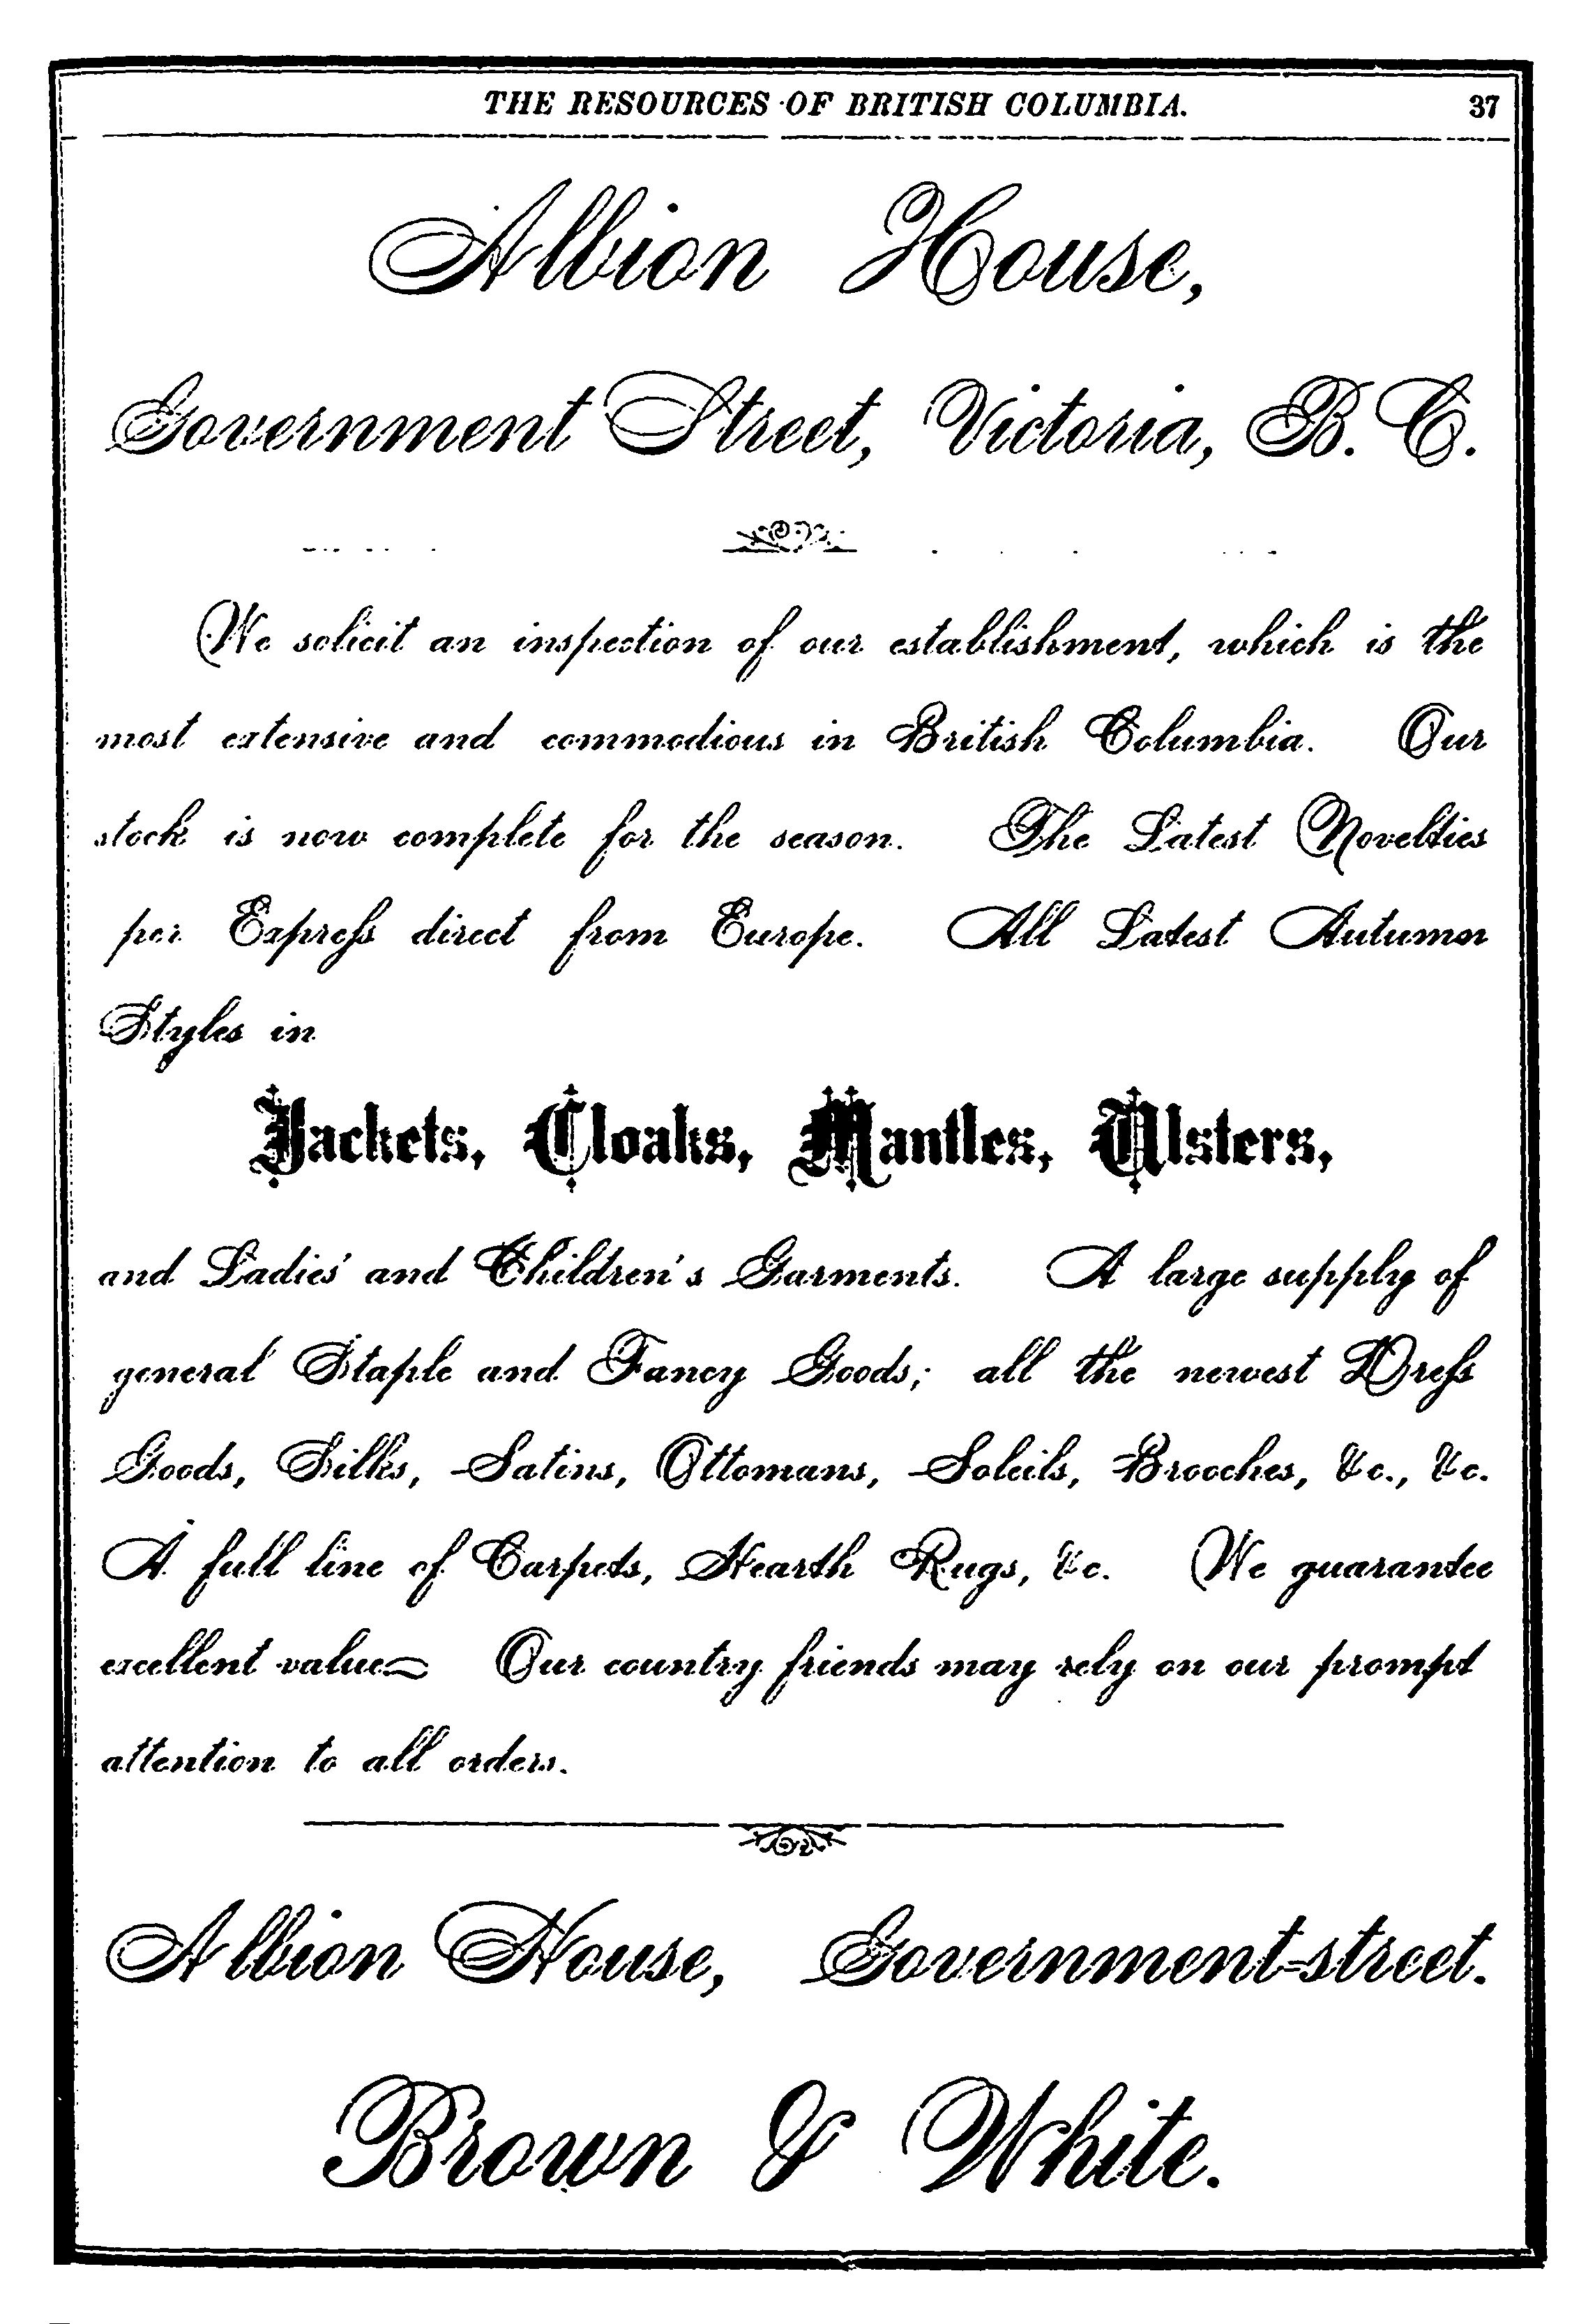 THE RESOURCES OF BRITISH COLUMBIA. 37
Albion House,
Government Street, Victoria, B. C.
We solicit an inspection of our establishment, which is the
most extensive and commodious in British Columbia. Our
stock is now complete for the season. The Latest Novelties
per Expreſs direct from Europe. All Latest Autumn
Styles in
Jackets, Cloaks, Mantles, Ulsters,
and Ladies' and Children's Garments. A large supply of
general Staple and Fancy Goods; all the newest Dreſs
Goods, Silks, Satins, Ottomans, Soleils, Brooches, &c., &c.
A full line of Carpets, Hearth Rugs, &c. We guarantee
excellent value. Our country friends may rely on our prompt
attention to all orders.
Albion House, Government-street.
Brown & White.